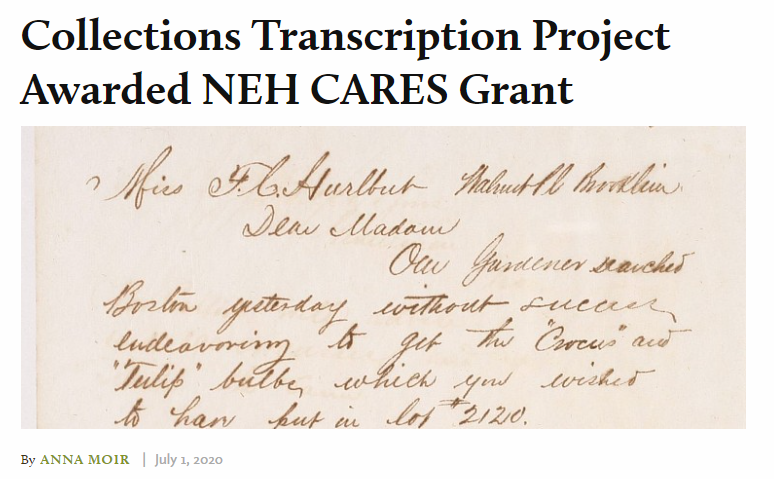 Collections Transcription Project
Awarded NEH CARES Grant
Miss F. C. Hurlbut Walnut Pl Brooklin
Dear Madam
Our Gardener searched
Boston yesterday without success
endeavoring to get the "Crocus" and
"Tulip" bulbs, which you wished
to have put in lot #2120.
By ANNA MOIR | July 1, 2020